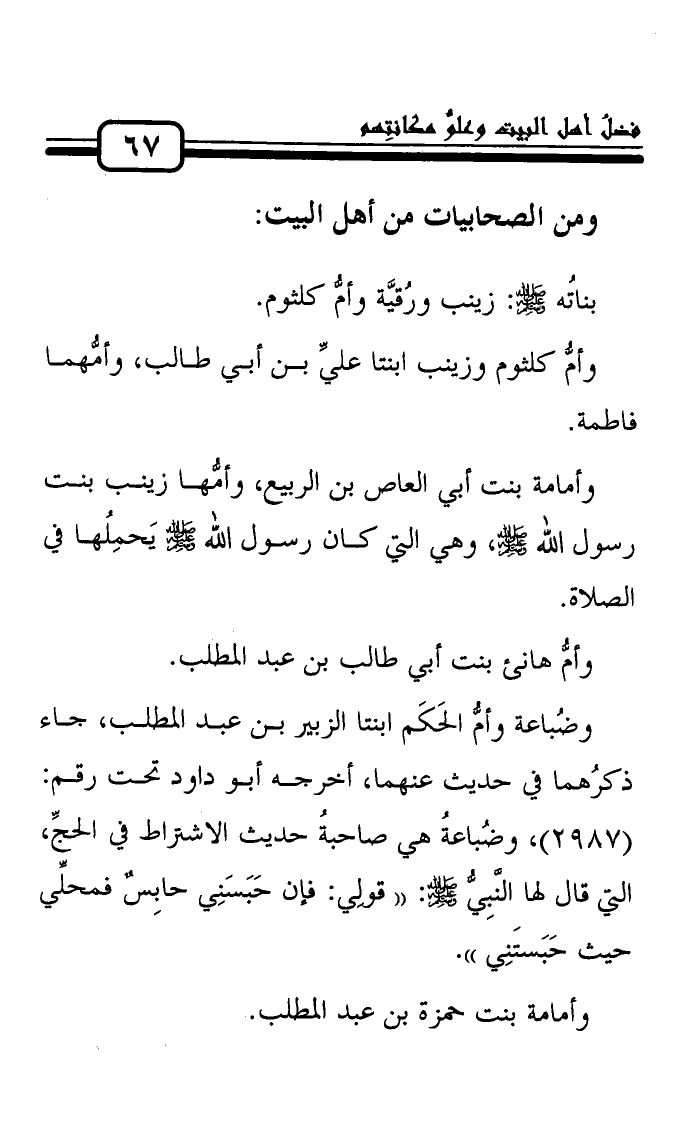 فضلُ أهل البيت وعلوُّ مكانتِهم
٦٧
ومن الصحابيات من أهل البيت:
بناتُه ﷺ: زينب ورُقيَّة وأمُّ كلثوم.
وأمُّ كلثوم وزينب ابنتا عليِّ بـن أبـي طـالب، وأمُّهمـا
فاطمة.
وأمامة بنت أبي العاص بن الربيع، وأمُّهـا زينـب بنـت
رسول الله ﷺ، وهي التي كـان رسـول الله ﷺ يَحمِلُهـا في
الصلاة.
وأمُّ هانئ بنت أبي طالب بن عبد المطلب.
وضُباعة وأمُّ الحَكَم ابنتا الزبير بـن عبـد المطلـب، جـاء
ذكرُهما في حديث عنهما، أخرجـه أبـو داود تحـت رقـم:
(٢٩٨٧)، وضُباعةُ هي صاحبةُ حديث الاشتراط في الحجِّ،
التي قال لها النَّبِيُّ ﷺ: (( قولِي: فإن حَبَسَنِي حابِسٌ فمحلِّي
حيث حَبَستَنِي )).
وأمامة بنت حمزة بن عبد المطلب.